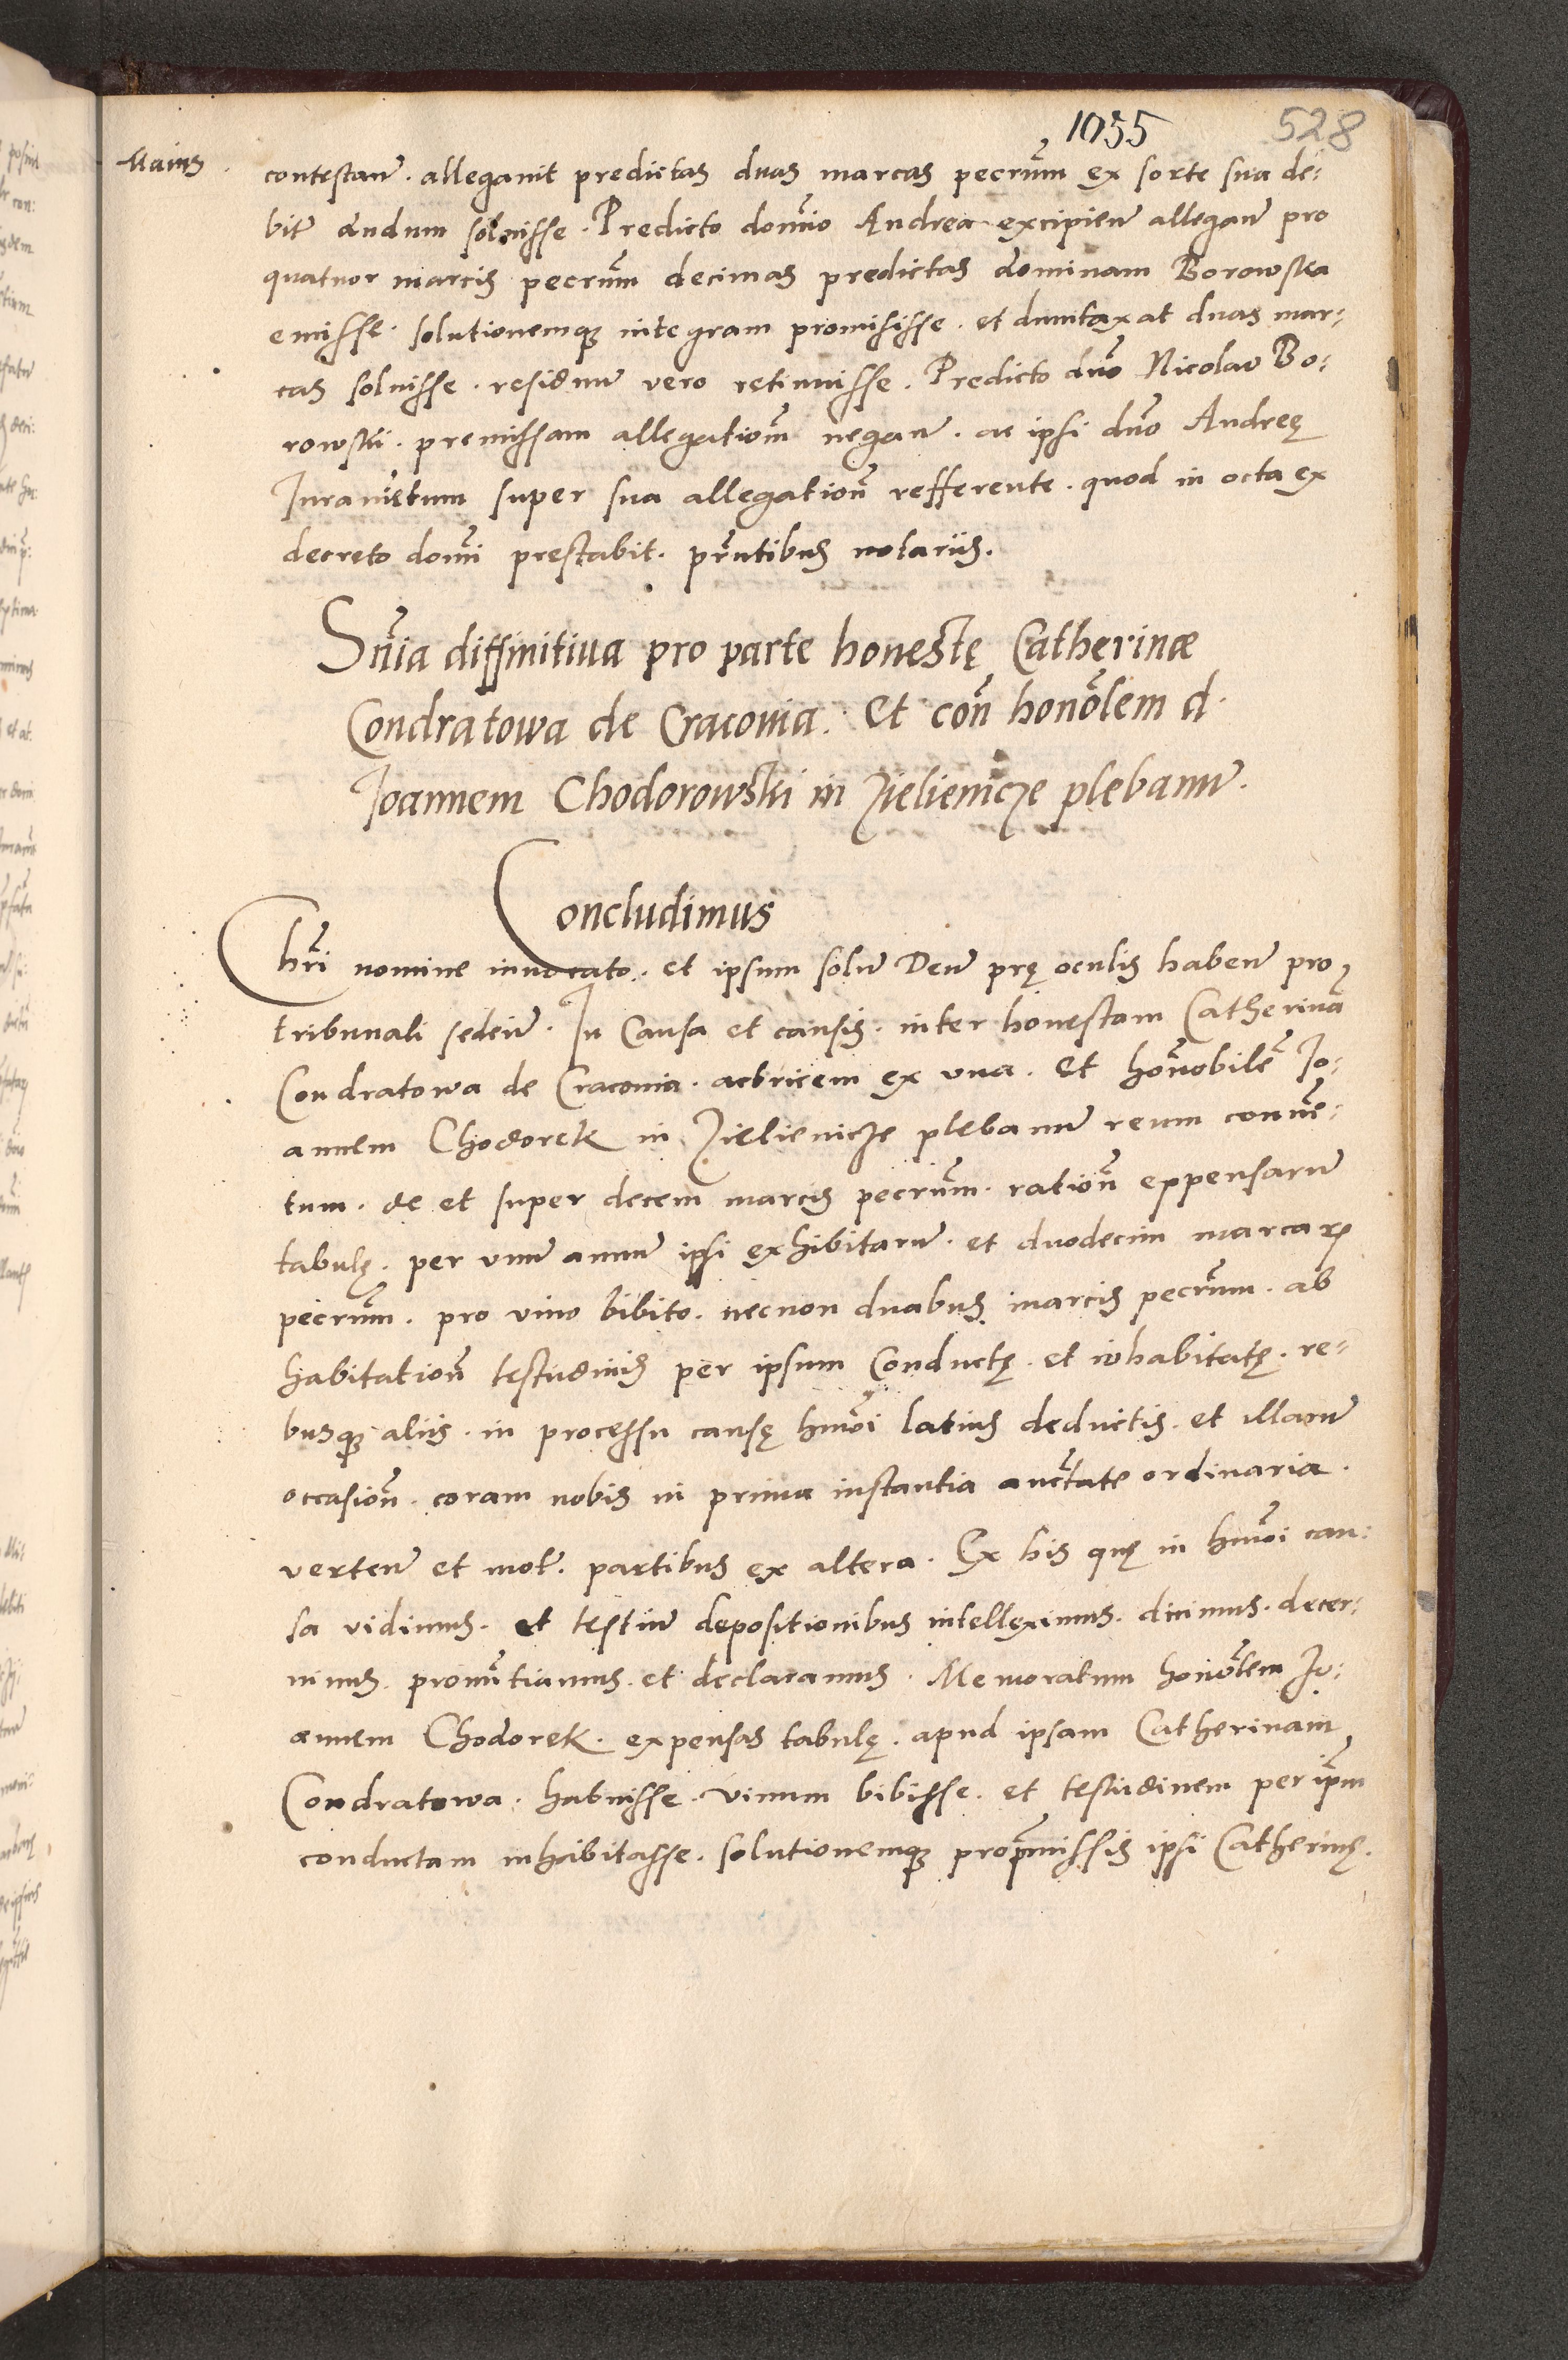 1055 528
Maius
contestan. allegavit predictas duas marcas pecrum ex sorte sua de:
bit dudum solvisse. Predicto domino Andrea excipien allegan pro
quatuor marcis pecrum decimas predictas dominam Borowska
emisse. solutionemque integram promisisse. et dumtaxat duas mar:
cas solvisse. residuum vero retinuisse. Predicto dno Nicolao Bo:
rowski. premissam allegationem negan. ac ipsi dno Andreę
Iuramentum super sua allegation refferente. quod in octa ex
decreto domi prestabit. prntibus notariis.
Snia diffinitiua pro parte honestę Catherinæ
Condratowa de Cracouia. Et con honolem d.
Ioannem Chodorowski in Zielienicze plebanu.
Concludimus
Chri nomine invocato. et ipsum solu Deu prę oculis haben pro
tribunali seden. In Causa et causis. inter honestam Catherina
Condratowa de Cracouia. actricem ex una. Et honnobile Io:
annem Chodorek in Zielienicze plebanu reum conve:
tum. de et super decem marcis pecrum. ration expensaru
tabulę. per unu annu ipsi exhibitaru. et duodecim marcarum
pecrum. pro vino bibito. necnon duabus marcis pecrum. ab
habitation testudinis per ipsum conductę. et inhabitatę. re:
busque aliis. in processu causę hmoi latius deductis. et illaru
occasion. coram nobis in prima instantia auctate ordinaria.
verten et mot. partibus ex altera. Ex his quę in hmoi cau:
sa vidimus. et testiu depositionibus intelleximus. dicimus. decer:
nimus. pronuntiamus. et declaramus. Memoratum honolem Io:
annem Chodorek. expensas tabulę. apud ipsam Catherinam
Condratowa. habuisse. vinum bibisse. et testudinem per ipm
conductam inhabitasse. solutionemque pro pmissis ipsi Catherinę.